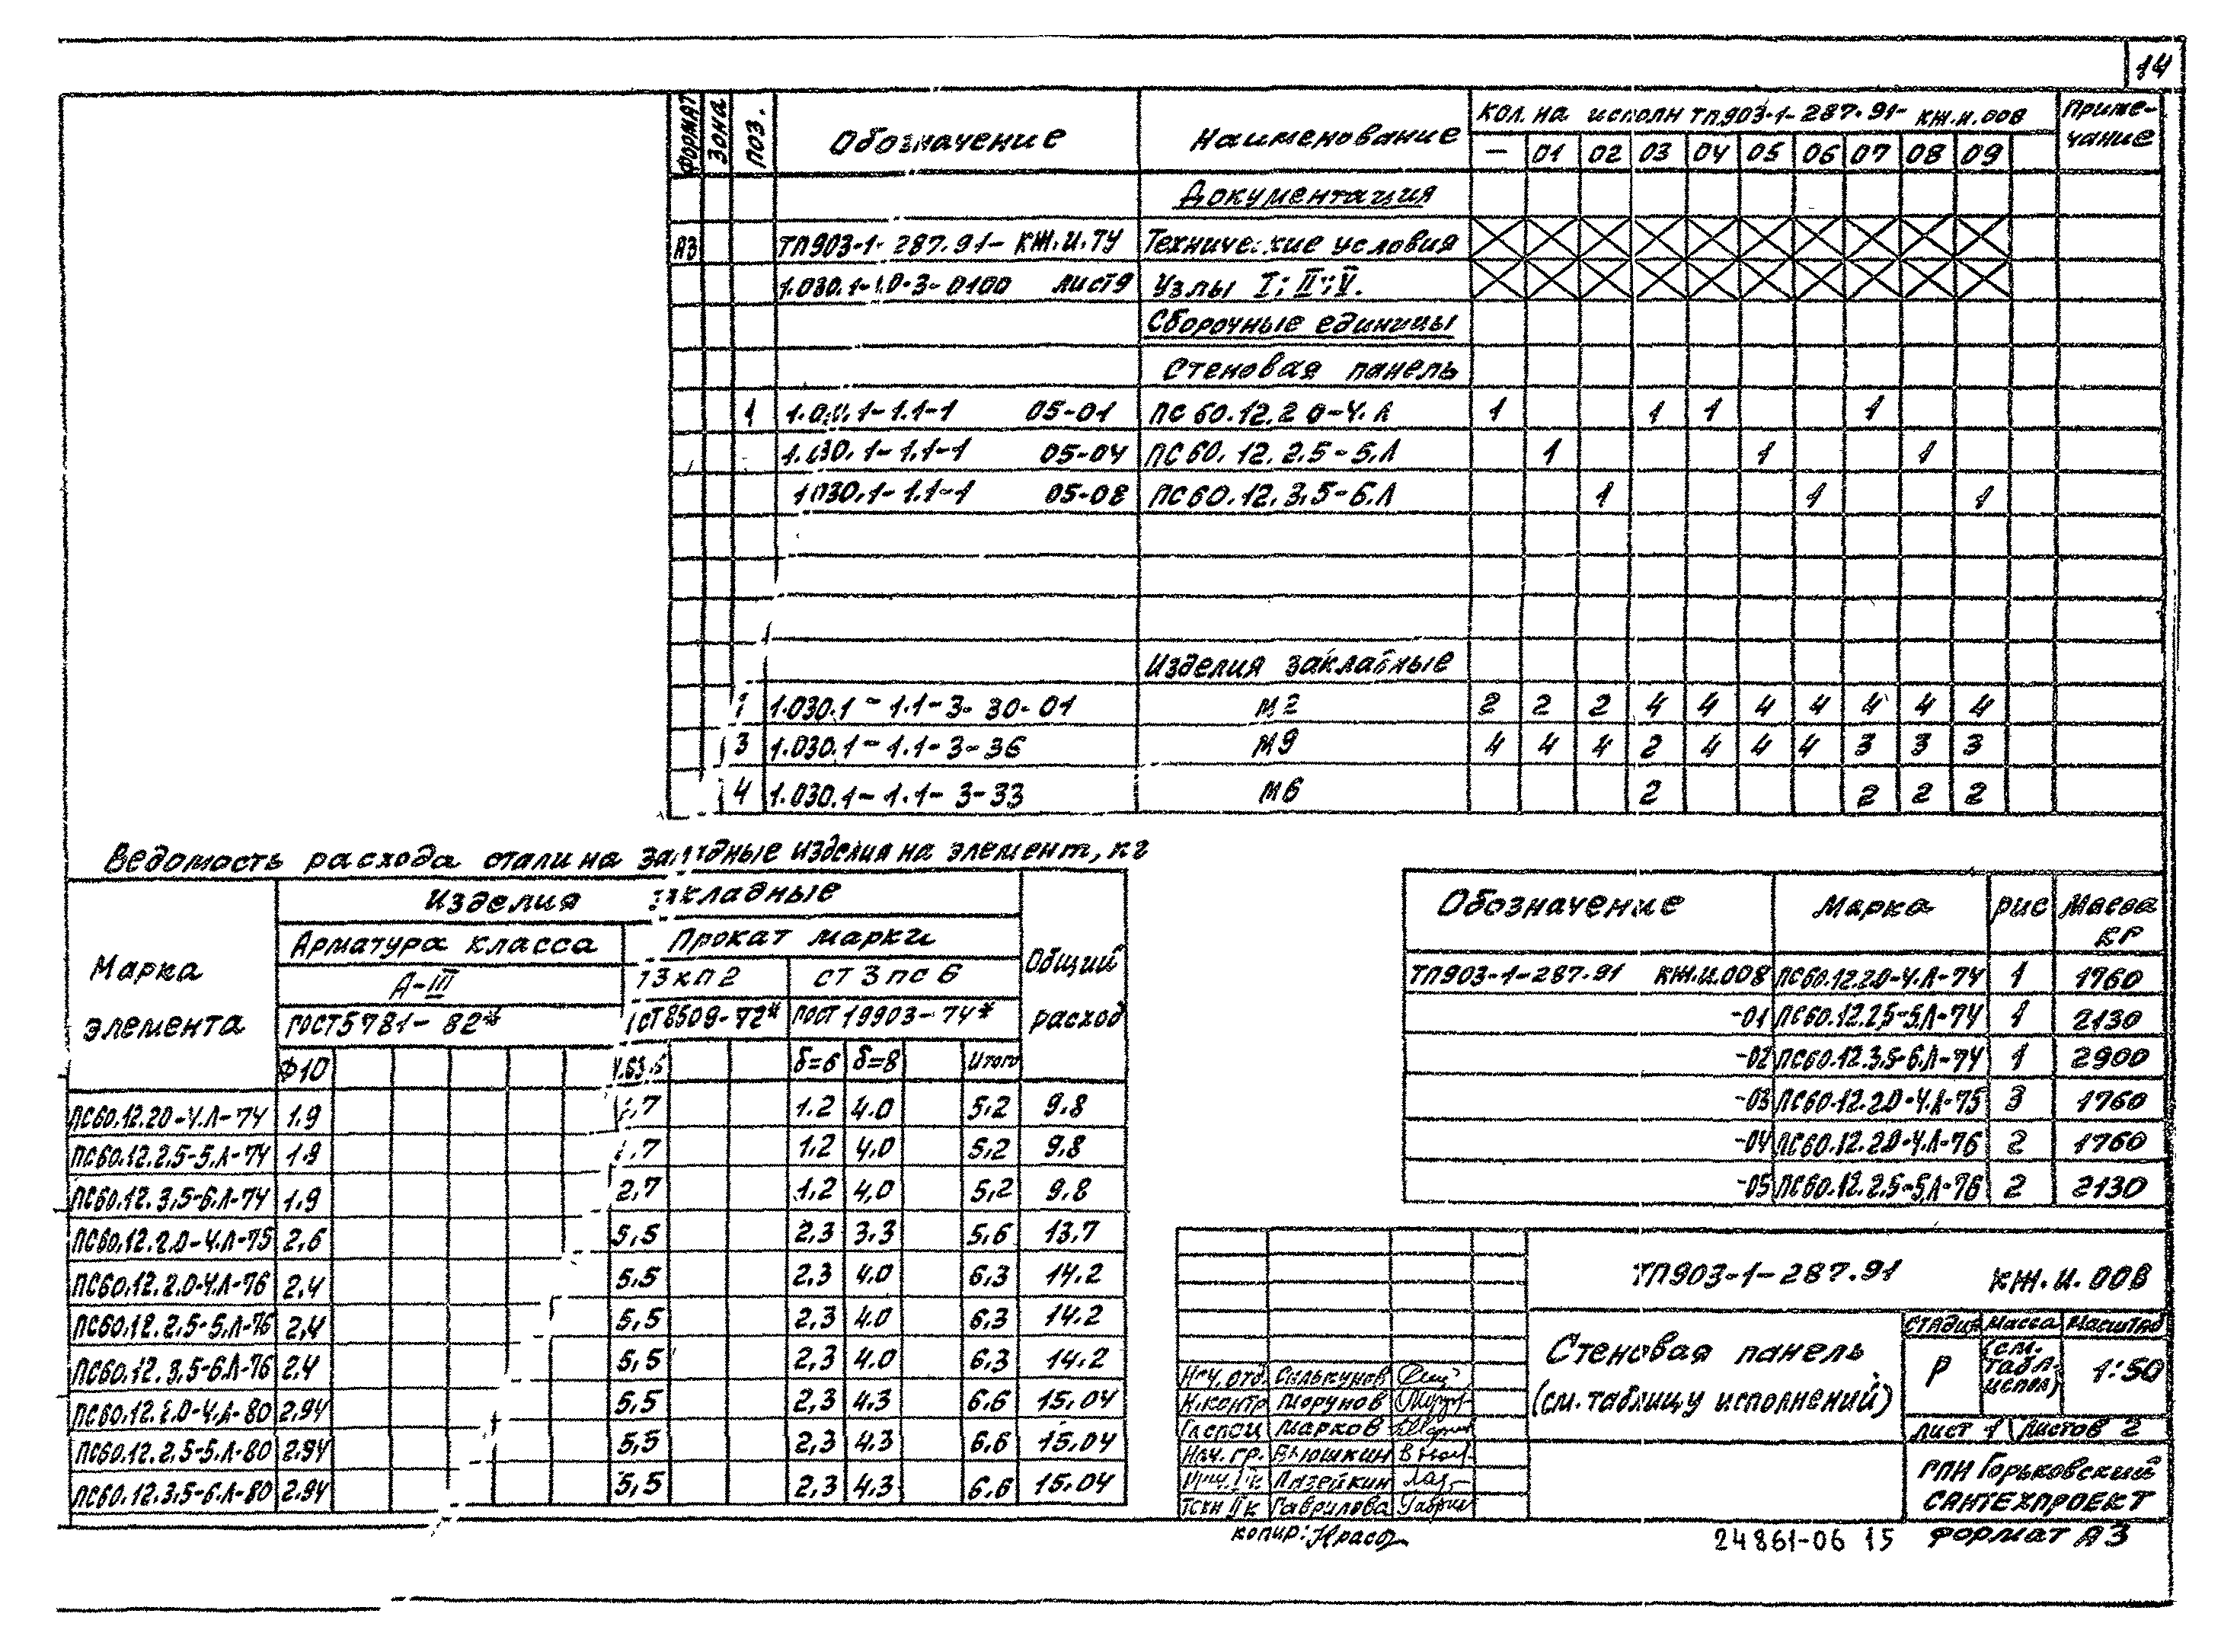 14
ФОРМАТ ЗОНА ПОЗ. Обозначение Наименование Кол. на исполн ТП903-1-287.91- КЖ.И.008 Приме-чание
— 01 02 03 04 05 06 07 08 09
Документация
А3 ТП903-1-287.91-КЖ.И.ТУ Технические условия
1.030.1-1.0-3-0100 лист9 Узлы I; II; V.
Сборочные единицы
Стеновая панель
1 05-01 ПС 60.12.2 0-4.Л 1 1 1 1
1.030.1-1.1-1 05-04 ПС 60.12.2,5-5.Л 1 1 1
1.030.1-1.1-1 05-08 ПС 60.12.3,5-6.Л 1 1 1
Изделия закладные
1.030.1-1.1-3-30-01 М2 2 2 2 4 4 4 4 4 4 4
3 1.030.1-1.1-3-36 М9 4 4 4 2 4 4 4 3 3 3
4 1.030.1-1.1-3-33 М6 2 2 2 2
Ведомость расхода стали на закладные изделия на элемент, кг
Марка элемента Изделия закладные Общий расход
Арматура класса Прокат марки
А-III 3кп2 Ст3пс6
ГОСТ5781-82* 8509-72* ГОСТ 19903-74*
Ф10 63 δ=6 δ=8 Итого
ПС60.12.20-4.Л-74 1.9 1.2 4.0 5,2 9.8
ПС60.12.2,5-5.Л-74 1.9 1,2 4,0 5,2 9,8
ПС60.12.3,5-6.Л-74 1,9 2,7 1,2 4,0 5,2 9,8
ПС60.12.2.0-4.Л-75 2,6 5,5 2,3 3,3 5,6 13,7
ПС60.12.2.0-4.Л-76 2,4 5,5 2,3 4.0 6,3 14.2
ПС60.12.2,5-5.Л-76 2,4 5,5 2,3 4.0 6,3 14.2
ПС60.12.3,5-6.Л-76 2,4 5,5 2,3 4.0 6,3 14.2
ПС60.12.2.0-4.Л-80 2,94 5,5 2,3 4.3 6.6 15.04
ПС60.12.2,5-5.Л-80 2.94 5,5 2,3 4.3 6.6 15.04
ПС60.12.3,5-6.Л-80 2.94 5,5 2,3 4.3 6.6 15.04
Обозначение Марка рис Масса кг
ТП903-1-287.91 КЖ.И.008 ПС60.12.2.0-4.Л-74 1 1760
-01 ПС60.12.2,5-5.Л-74 1 2130
-02 ПС60.12.3,5-6.Л-74 1 2900
-03 ПС60.12.2.0-4.Л-75 3 1760
-04 ПС60.12.2.0-4.Л-76 2 1760
-05 ПС60.12.2,5-5.Л-76 2 2130
ТП903-1-287.91 КЖ.И.008
Стеновая панель
(см. таблицу исполнений)
Стадия Масса Масштаб
Р (см. табл. испол) 1:50
Лист 1 Листов 2
Нач.отд. Салькунов
Н.контр Морунов
Гл спец Марков
Нач. гр. Вьюшкин
Лазейкин
Техн IIк Гаврилова
ГПИ Горьковский
САНТЕХПРОЕКТ
копир:
24861-06 15 Формат А3